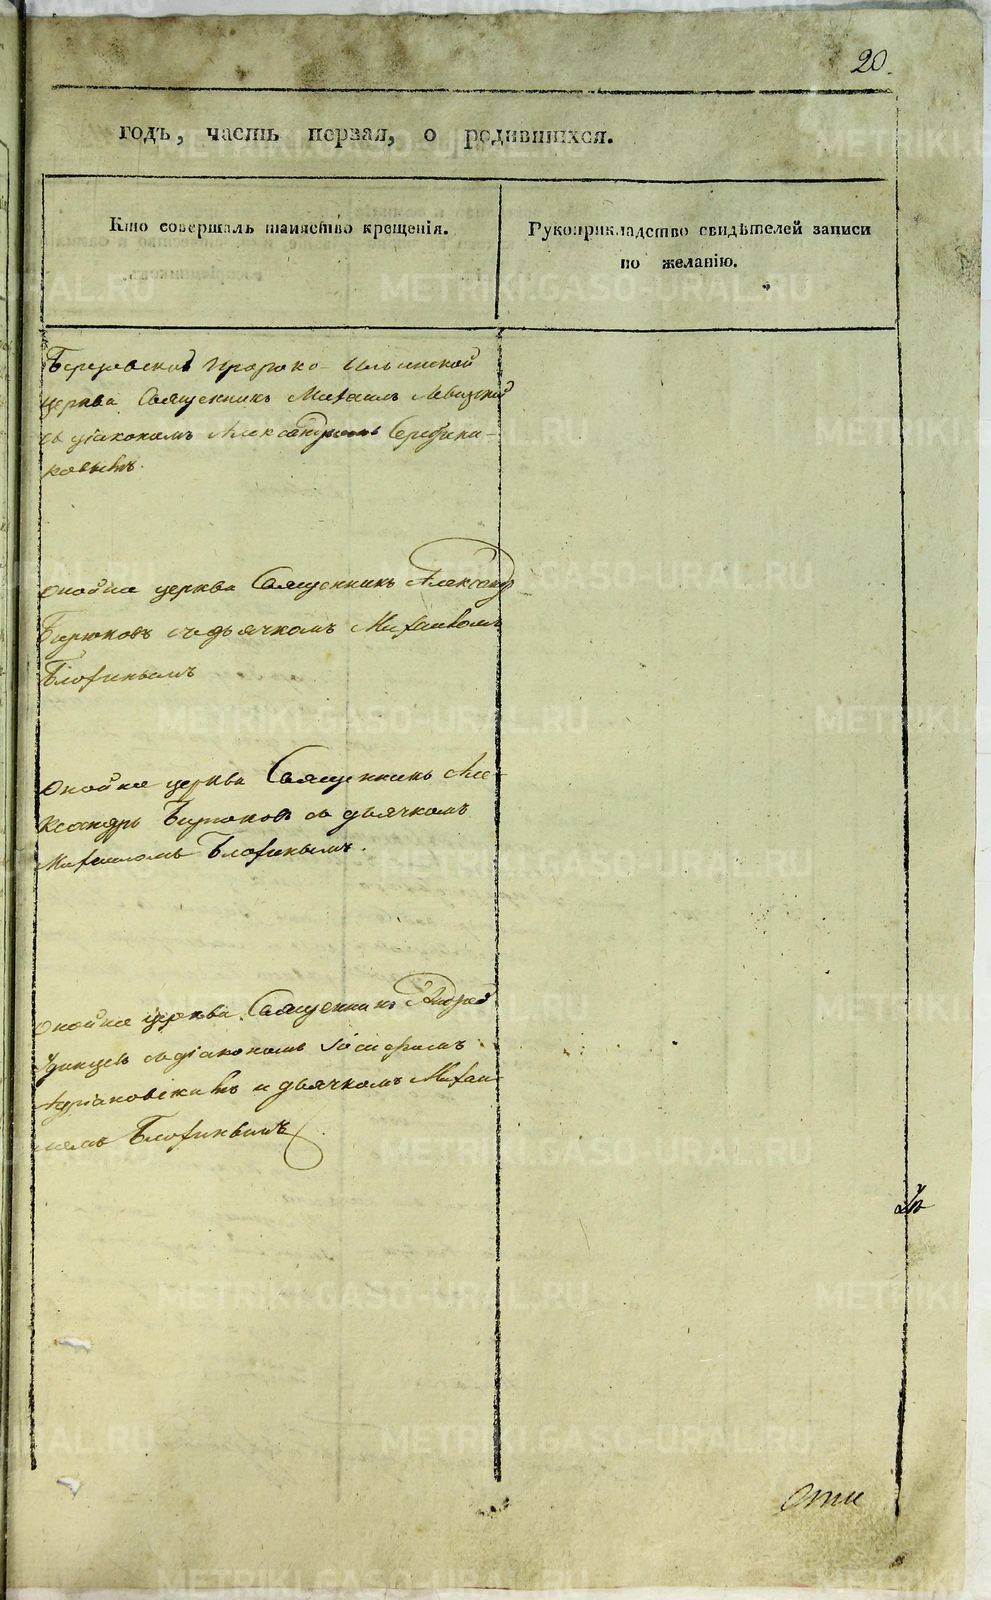 20.
годъ, часть первая, о родившихся.
Кто совершалъ таинство крещенія.
Рукоприкладство свидѣтелей записи
по желанію.
Березовской Пророко-Ильинской
церкви Священникъ Михаилъ Левицкій
съ діакономъ Александромъ Серебрени-
ковымъ.
оной же церкви Священникъ Александръ
Бирюковъ съ дьячкомъ Михаиломъ
Блохинымъ
оной же церкви Священникъ Але-
ксандръ Бирюковъ съ дьячкомъ
Михаиломъ Блохинымъ.
оной же церкви Священникъ Андрей
Удинцевъ съ діакономъ Іосифомъ
и дьячкомъ Михаи-
ломъ Блохинымъ
METRIKI.GASO-URAL.RU